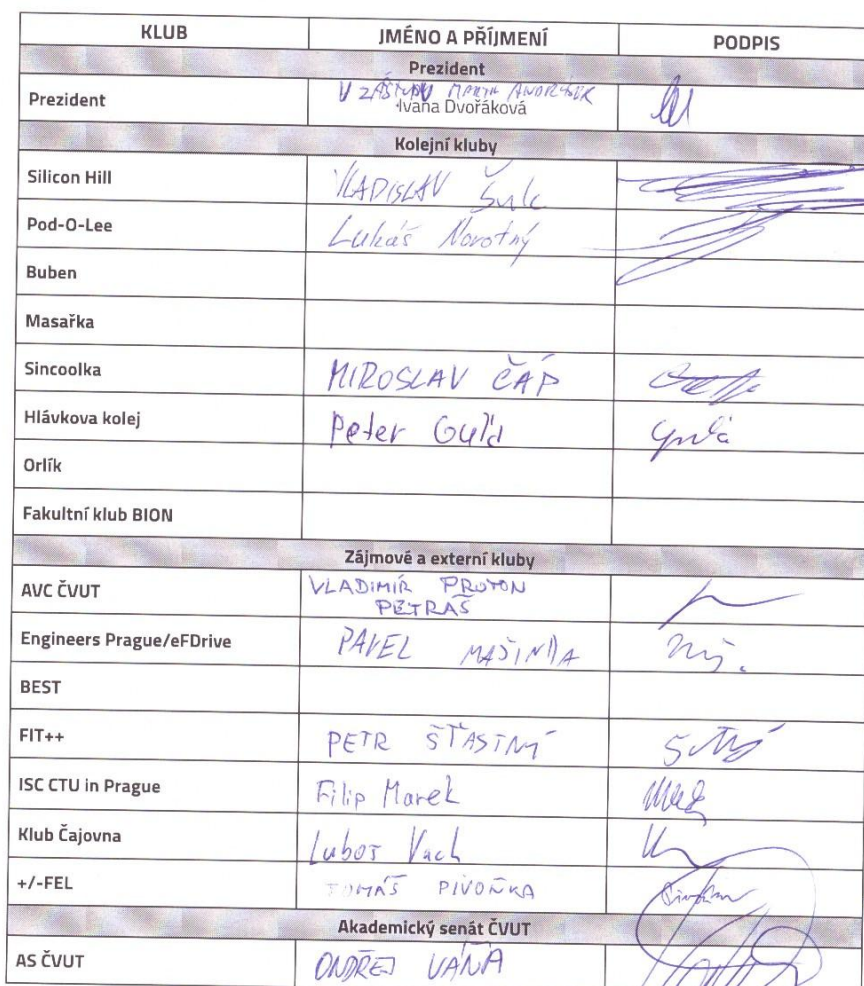 KLUB JMÉNO A PŘÍJMENÍ PODPIS
Prezident
V ZÁSTUPU
Prezident Ivana Dvořáková
Kolejní kluby
Silicon Hill VLADISLAV Šulc
Pod-O-Lee Lukáš Novotný
Buben
Masařka
Sincoolka MIROSLAV ČÁP
Hlávkova kolej Peter
Orlík
Fakultní klub BION
Zájmové a externí kluby
AVC ČVUT VLADIMÍR PROTON
PETRÁŠ
Engineers Prague/eFDrive PAVEL MAŠINDA
BEST
FIT++ PETR ŠŤASTNÝ
ISC CTU in Prague Filip Marek
Klub Čajovna Luboš Vach
+/-FEL TOMÁŠ PIVOŇKA
Akademický senát ČVUT
AS ČVUT ONDŘEJ VÁŇA